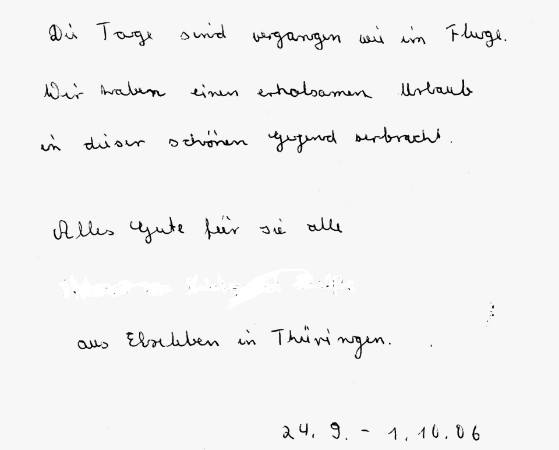 Die Tage sind vergangen wie im Fluge.
Wir haben einen erholsamen Urlaub
in dieser schönen Gegend verbracht.
Alles Gute für sie alle
aus Elxleben in Thüringen.
24. 9. - 1. 10. 06